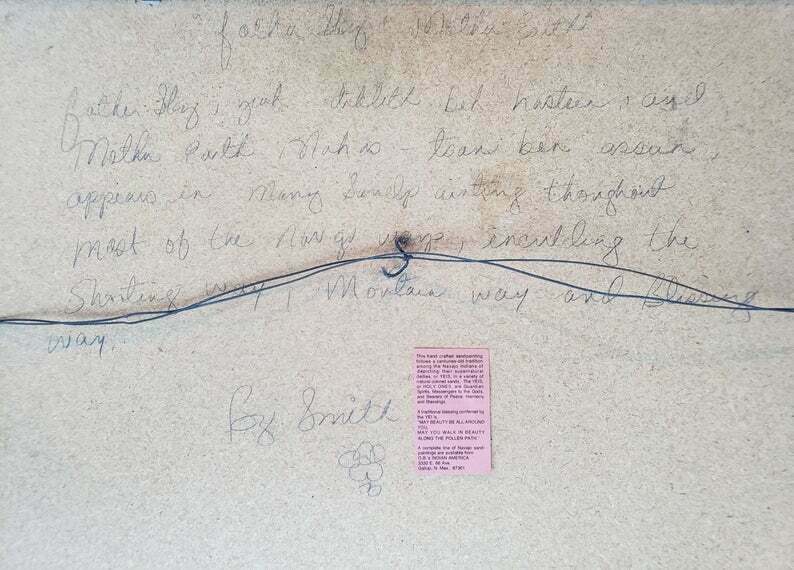 "Father Sky & Mother Earth"
Father Sky, yah dikleth beh hasteen, and
Mother Earth, Nahas - tsan beh assun,
appears in many Sandp ainting thoughout
most of the Navajo ways, inculding the
Shooting way, Montain way and Blessing
way.
By Smith
This hand crafted sandpainting
follows a centuries-old tradition
among the Navajo Indians of
depicting their supernatural
deities, or YEIS, in a variety of
natural colored sands. The YEIS,
or HOLY ONES, are Guardian
Spirits, Messengers to the Gods,
and Bearers of Peace, Harmony
and Blessings.
A traditional blessing conferred by
the YEI is,
"MAY BEAUTY BE ALL AROUND
YOU,
MAY YOU WALK IN BEAUTY
ALONG THE POLLEN PATH."
A complete line of Navajo sand-
paintings are available from
O.B.'s INDIAN AMERICA
3330 E. 66 Ave.
Gallup, N. Mex. 87301